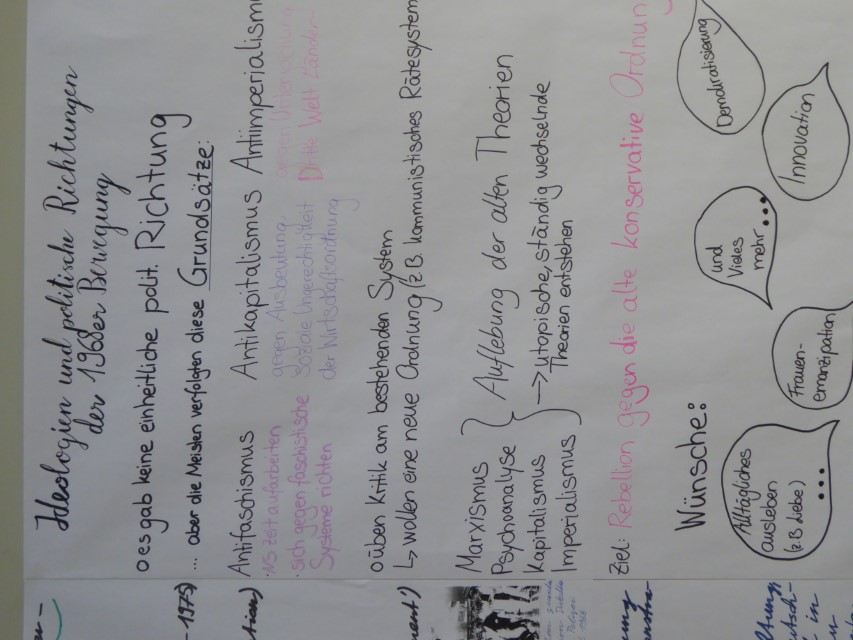 Ideologien und politische Richtungen
der 1968er Bewegung
o es gab keine einheitliche polit. Richtung
... aber die Meisten verfolgten diese Grundsätze:
Antifaschismus Antikapitalismus Antiimperialism
· NS Zeit aufarbeiten
· sich gegen faschistische
Systeme richten
gegen Ausbeutung,
soziale Ungerechtigkeit
der Wirtschaftsordnung
gegen
Dritte Welt Länder
o üben Kritik am bestehenden System
↳ wollen eine neue Ordnung (z.B. kommunistisches Rätesystem
Marxismus
Psychoanalyse
Kapitalismus
Imperialismus
Auflebung der alten Theorien
→ utopische, ständig wechselnde
Theorien entstehen
Ziel: Rebellion gegen die alte konservative Ordnung
Wünsche:
Alltägliches
ausleben
(z.B. Liebe)
...
Frauen-
emanzipation
und
Vieles
mehr...
Demokratisierung
Innovation
-1975)